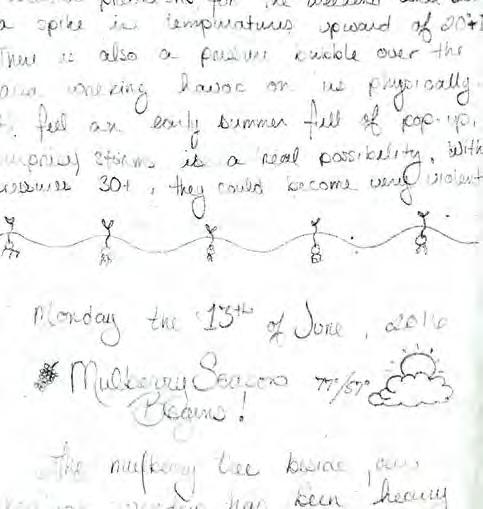 for the weekend
a spike in temperatures upward of 20+
There is also a pressure bubble over the
area wreking havoc on us physically.
I feel an early summer full of pop-up,
surprise storms is a real possibility. With
pressures 30+, they could become very violent
Monday the 13th of June, 2016
Mulberry Season 77°/57°
Begins!
The mulberry tree beside our
has been heavy